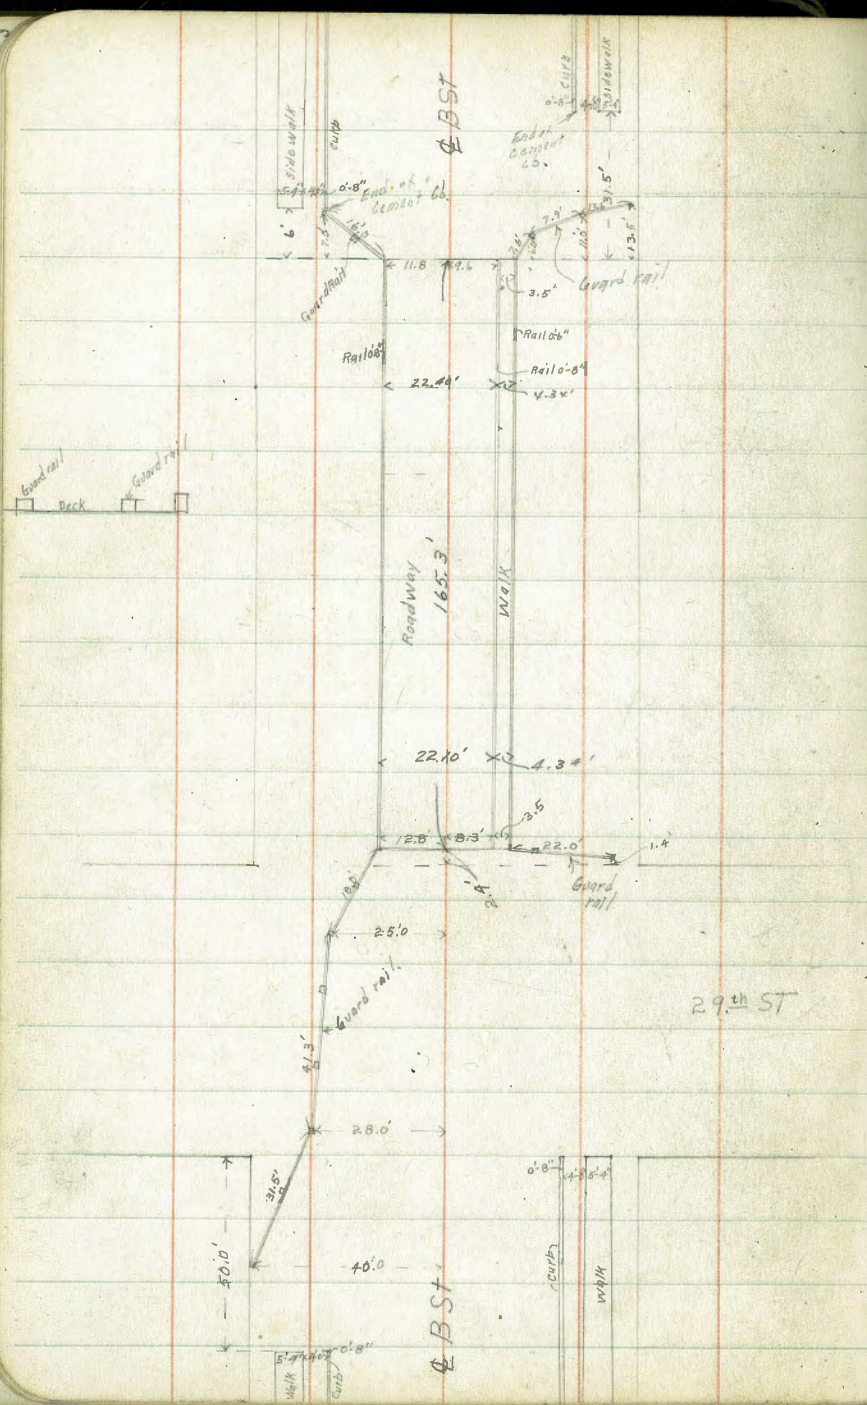 Sidewalk
Curb
℄ B ST
Curb
Sidewalk
0'-8"
End of
Cement
Cb.
31.5'
5'-4"
0'-8"
End of
Cement Cb.
6'
7.5'
16.0
Guard Rail
11.8
9.6
2.6'
7.9'
11.5'
13.5'
Guard rail
3.5'
Rail 0'-6"
Rail 0'-8"
Rail 0'-8"
22.40'
4.34'
Guard rail
Guard rail
Deck
Roadway
165.3'
Walk
22.10'
4.34'
12.8'
8.3'
3.5
22.0'
1.4'
2.4'
Guard
rail
18.0'
25.0
Guard rail.
29.th ST
41.3'
28.0'
31.5'
0'-8"
4'-8"
5'-4"
50.0'
40.0
Curb
Walk
℄ B St
5'-4"
0'-8"
Walk
Curb